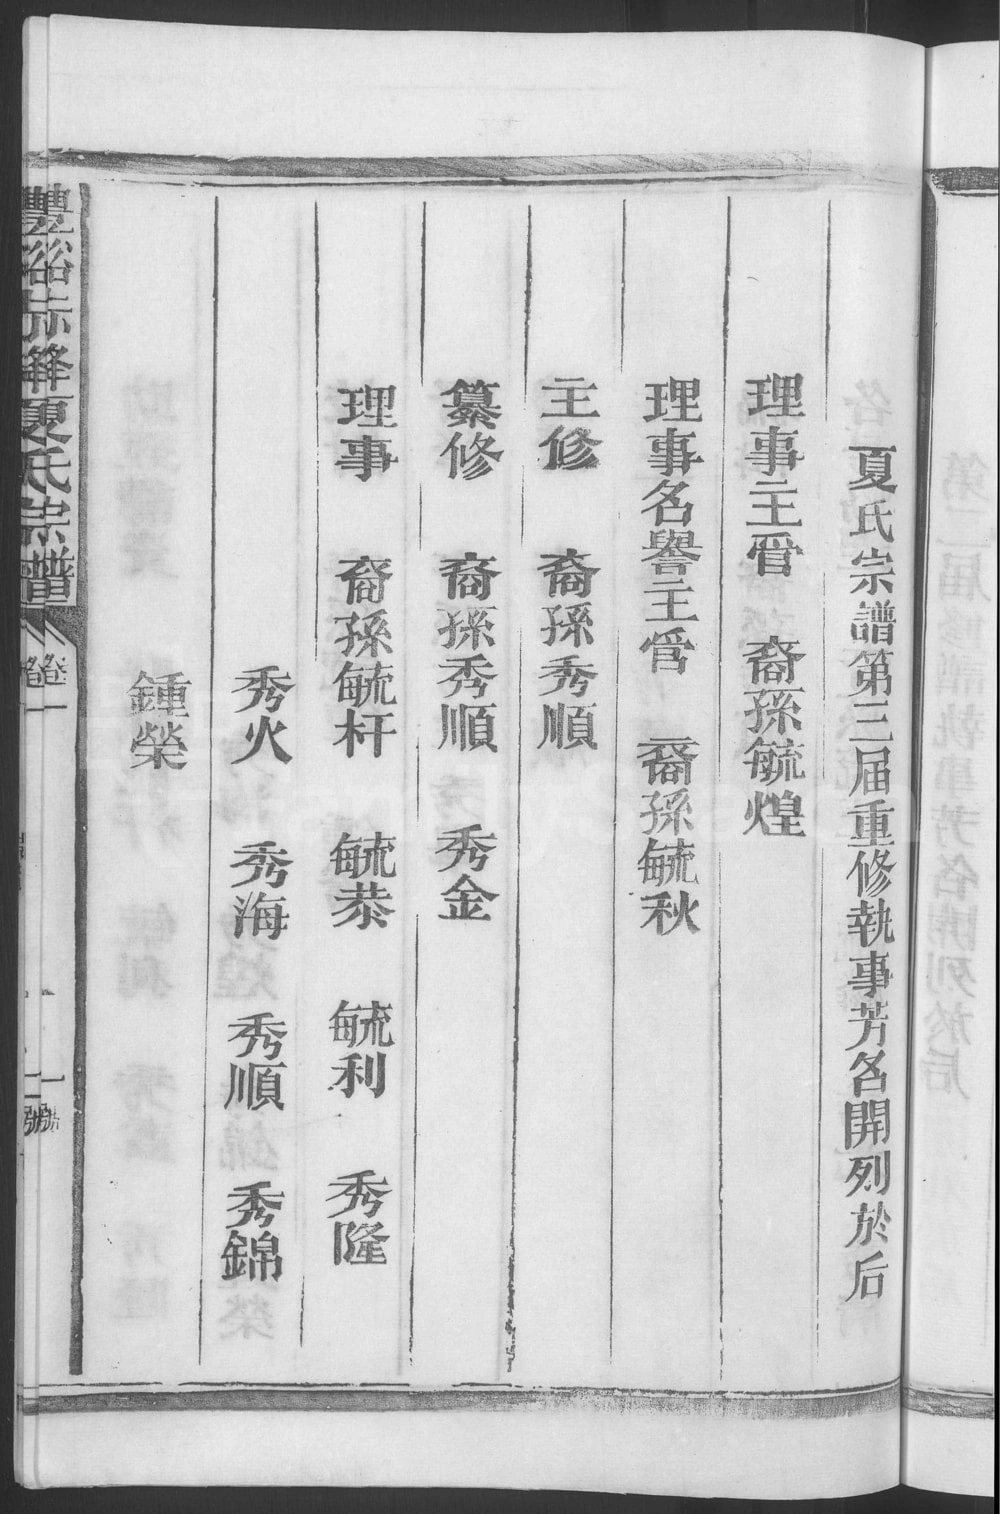 夏氏宗譜第三届重修執事芳名開列於后
理事主管 裔孫毓煌
理事名譽主管 裔孫毓秋
主修 裔孫秀順
纂修 裔孫秀順 秀金
理事 裔孫毓杆 毓恭 毓利 秀隆
秀火 秀海 秀順 秀錦
鍾榮
夏氏宗譜